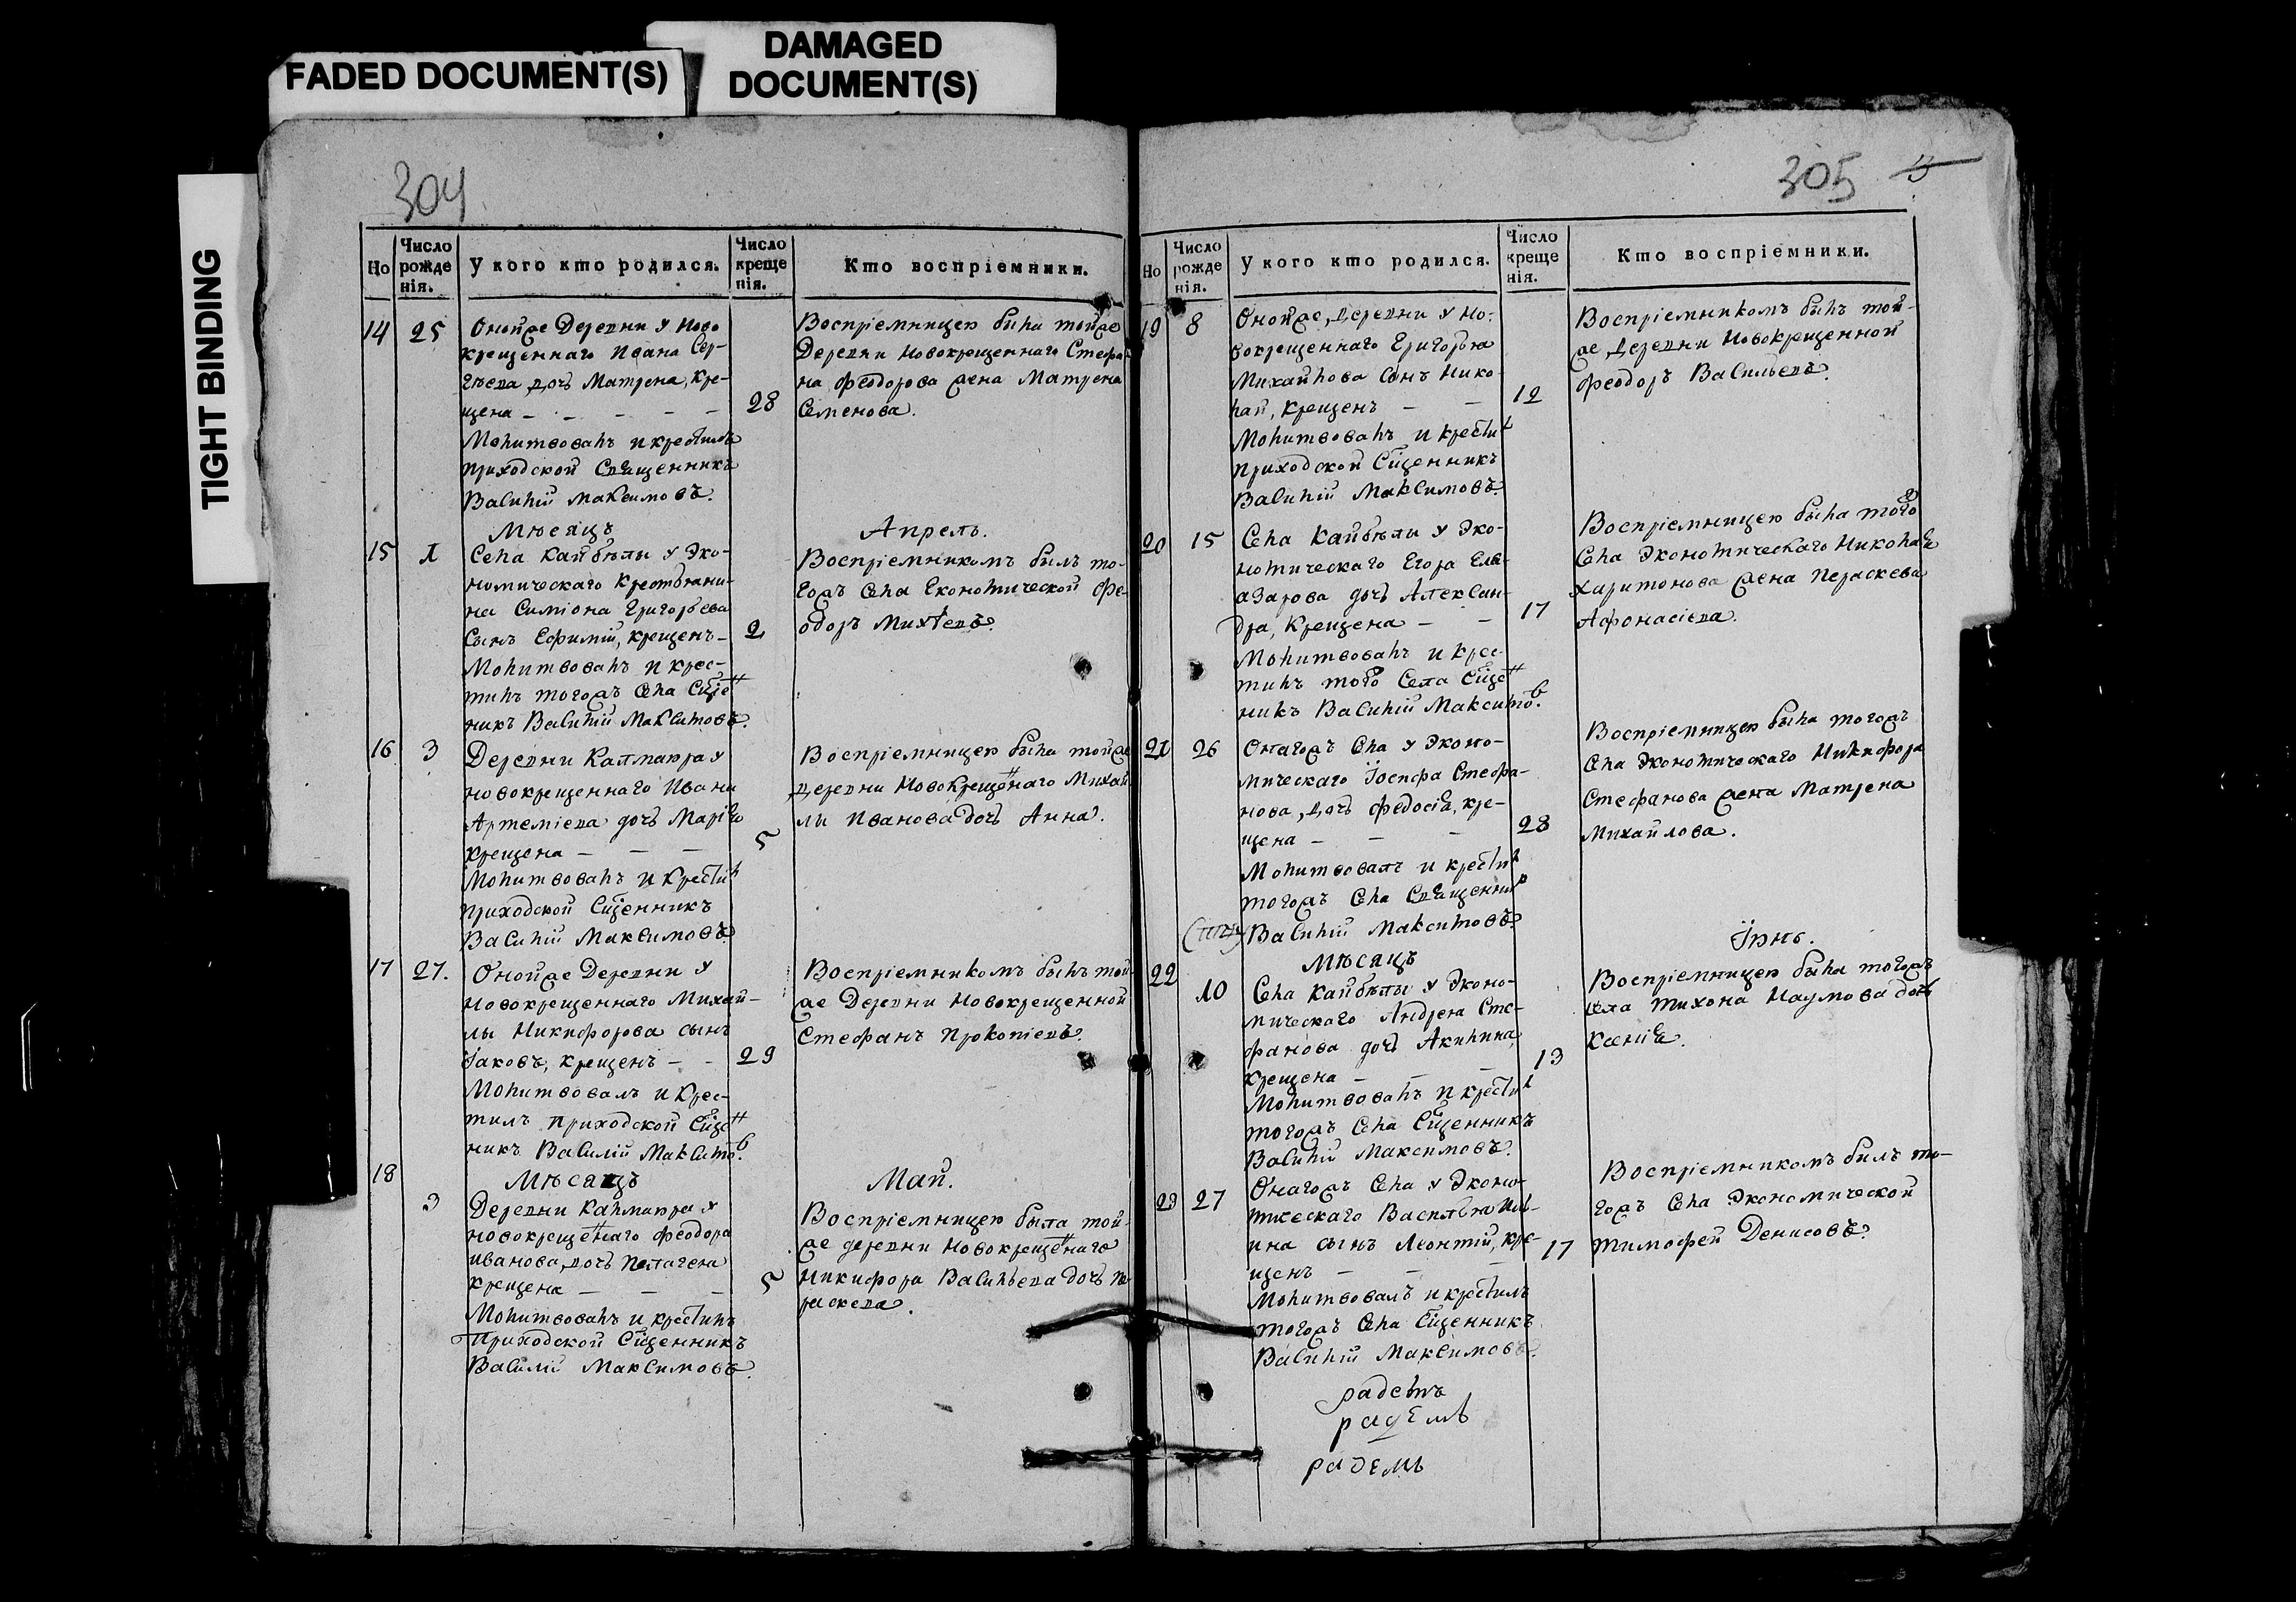 FADED DOCUMENT(S)
DAMAGED
DOCUMENT(S)
TIGHT BINDING
304
Но
Число
рожде
нія.
У кого кто родился.
Число
креще
нія.
Кто воспріемники.
14
25
Онойже Деревни у Ново
крещеннаго Ивана Сер-
гѣева дочь Матрена, кре-
щена – – – – –
28
Молитвовалъ и крестилъ
приходской Священникъ
Василій Максимовъ.
Воспріемницею была тойже
Деревни Новокрещеннаго Стефа
на Феодорова жена Матрена
Семенова.
Мѣсяцъ
Апрель.
15
1
Села Кайбѣлы у Эко-
номическаго Крестьяни-
на Симіона Григорьева
Сынъ Ефимій, крещенъ –
2
Молитвовалъ и крес-
тилъ тогожъ Села Сщ҃ен
никъ Василій Максимовъ.
Воспріемникомъ былъ то-
гожъ Села Економической Фе-
одоръ Михѣевъ.
16
3
Деревни Калмаюра у
новокрещеннаго Ивана
Артеміева дочь Марія
крещена – – –
5
Молитвовалъ и крестил
приходской Сщ҃енникъ
Василій Максимовъ.
Воспріемницею была тойже
деревни Новокрещеннаго Михай
лы Иванова дочь Анна.
17
27.
Онойже Деревни у
новокрещеннаго Михай-
лы Никифорова сынъ
Іаковъ, крещенъ – –
29
Молитвовалъ и Крес-
тилъ приходской Сщ҃ен
никъ Василій Максимов.
Воспріемникомъ былъ той
же Деревни Новокрещенной
Стефанъ Прокопіевъ.
18
Мѣсяцъ
Май.
3
Деревни Калмаюра у
новокрещеннаго Феодора
иванова, дочь Пелагея
крещена – – –
5
Молитвовалъ и крестилъ
Приходской Сщ҃енникъ
Василій Максимовъ.
Воспріемницею была той-
же деревни Новокрещеннаго
Никифора Васильева дочь Па
раскева.
305
Но
Число
рожде
нія.
У кого кто родился.
Число
креще
нія.
Кто воспріемники.
19
8
Онойже, Деревни у Но-
вокрещеннаго Григорья
Михайлова Сынъ Нико-
лай, крещенъ – –
12
Молитвовалъ и крестил
приходской Сщ҃енникъ
Василій Максимовъ.
Воспріемникомъ былъ той-
же Деревни Новокрещенной
Феодоръ Васильевъ.
20
15
Села Кайбѣлы у Эко-
номическаго Егора Еле-
азарова дочь Алексан-
дра, крещена – –
17
Молитвовалъ и крес-
тилъ того Села Сщ҃ен
никъ Василій Максимов.
Воспріемницею была того
Села Экономическаго Николая
Харитонова жена Параскева
Афонасіева.
21
26
Онагожъ Села у Эконо-
мическаго Іосифа Стефа-
нова, дочь Федосія, кре-
щена – –
28
Молитвовалъ и крестил
тогожъ Села Священник
Василій Максимовъ.
Воспріемницею была тогожъ
Села Экономическаго Никифора
Стефанова жена Матрена
Михайлова.
22
Мѣсяцъ
Іюнь.
10
Села Кайбѣлы у Эконо-
мическаго Андрея Сте-
фанова дочь Акилина,
крещена – – –
13
Молитвовалъ и крестил
тогожъ Села Сщ҃енникъ
Василій Максимовъ.
Воспріемницею была тогожъ
села Тихона Наумова дочь
Ксенія.
23
27
Онагожъ Села у Эконо-
мическаго Василья
ина сынъ Леонтій, кре-
щенъ – – –
17
Молитвовалъ и крестилъ
тогожъ Села Сщ҃енникъ
Василій Максимовъ.
Воспріемникомъ былъ то-
гожъ Села Экономической
Тимофей Денисовъ.